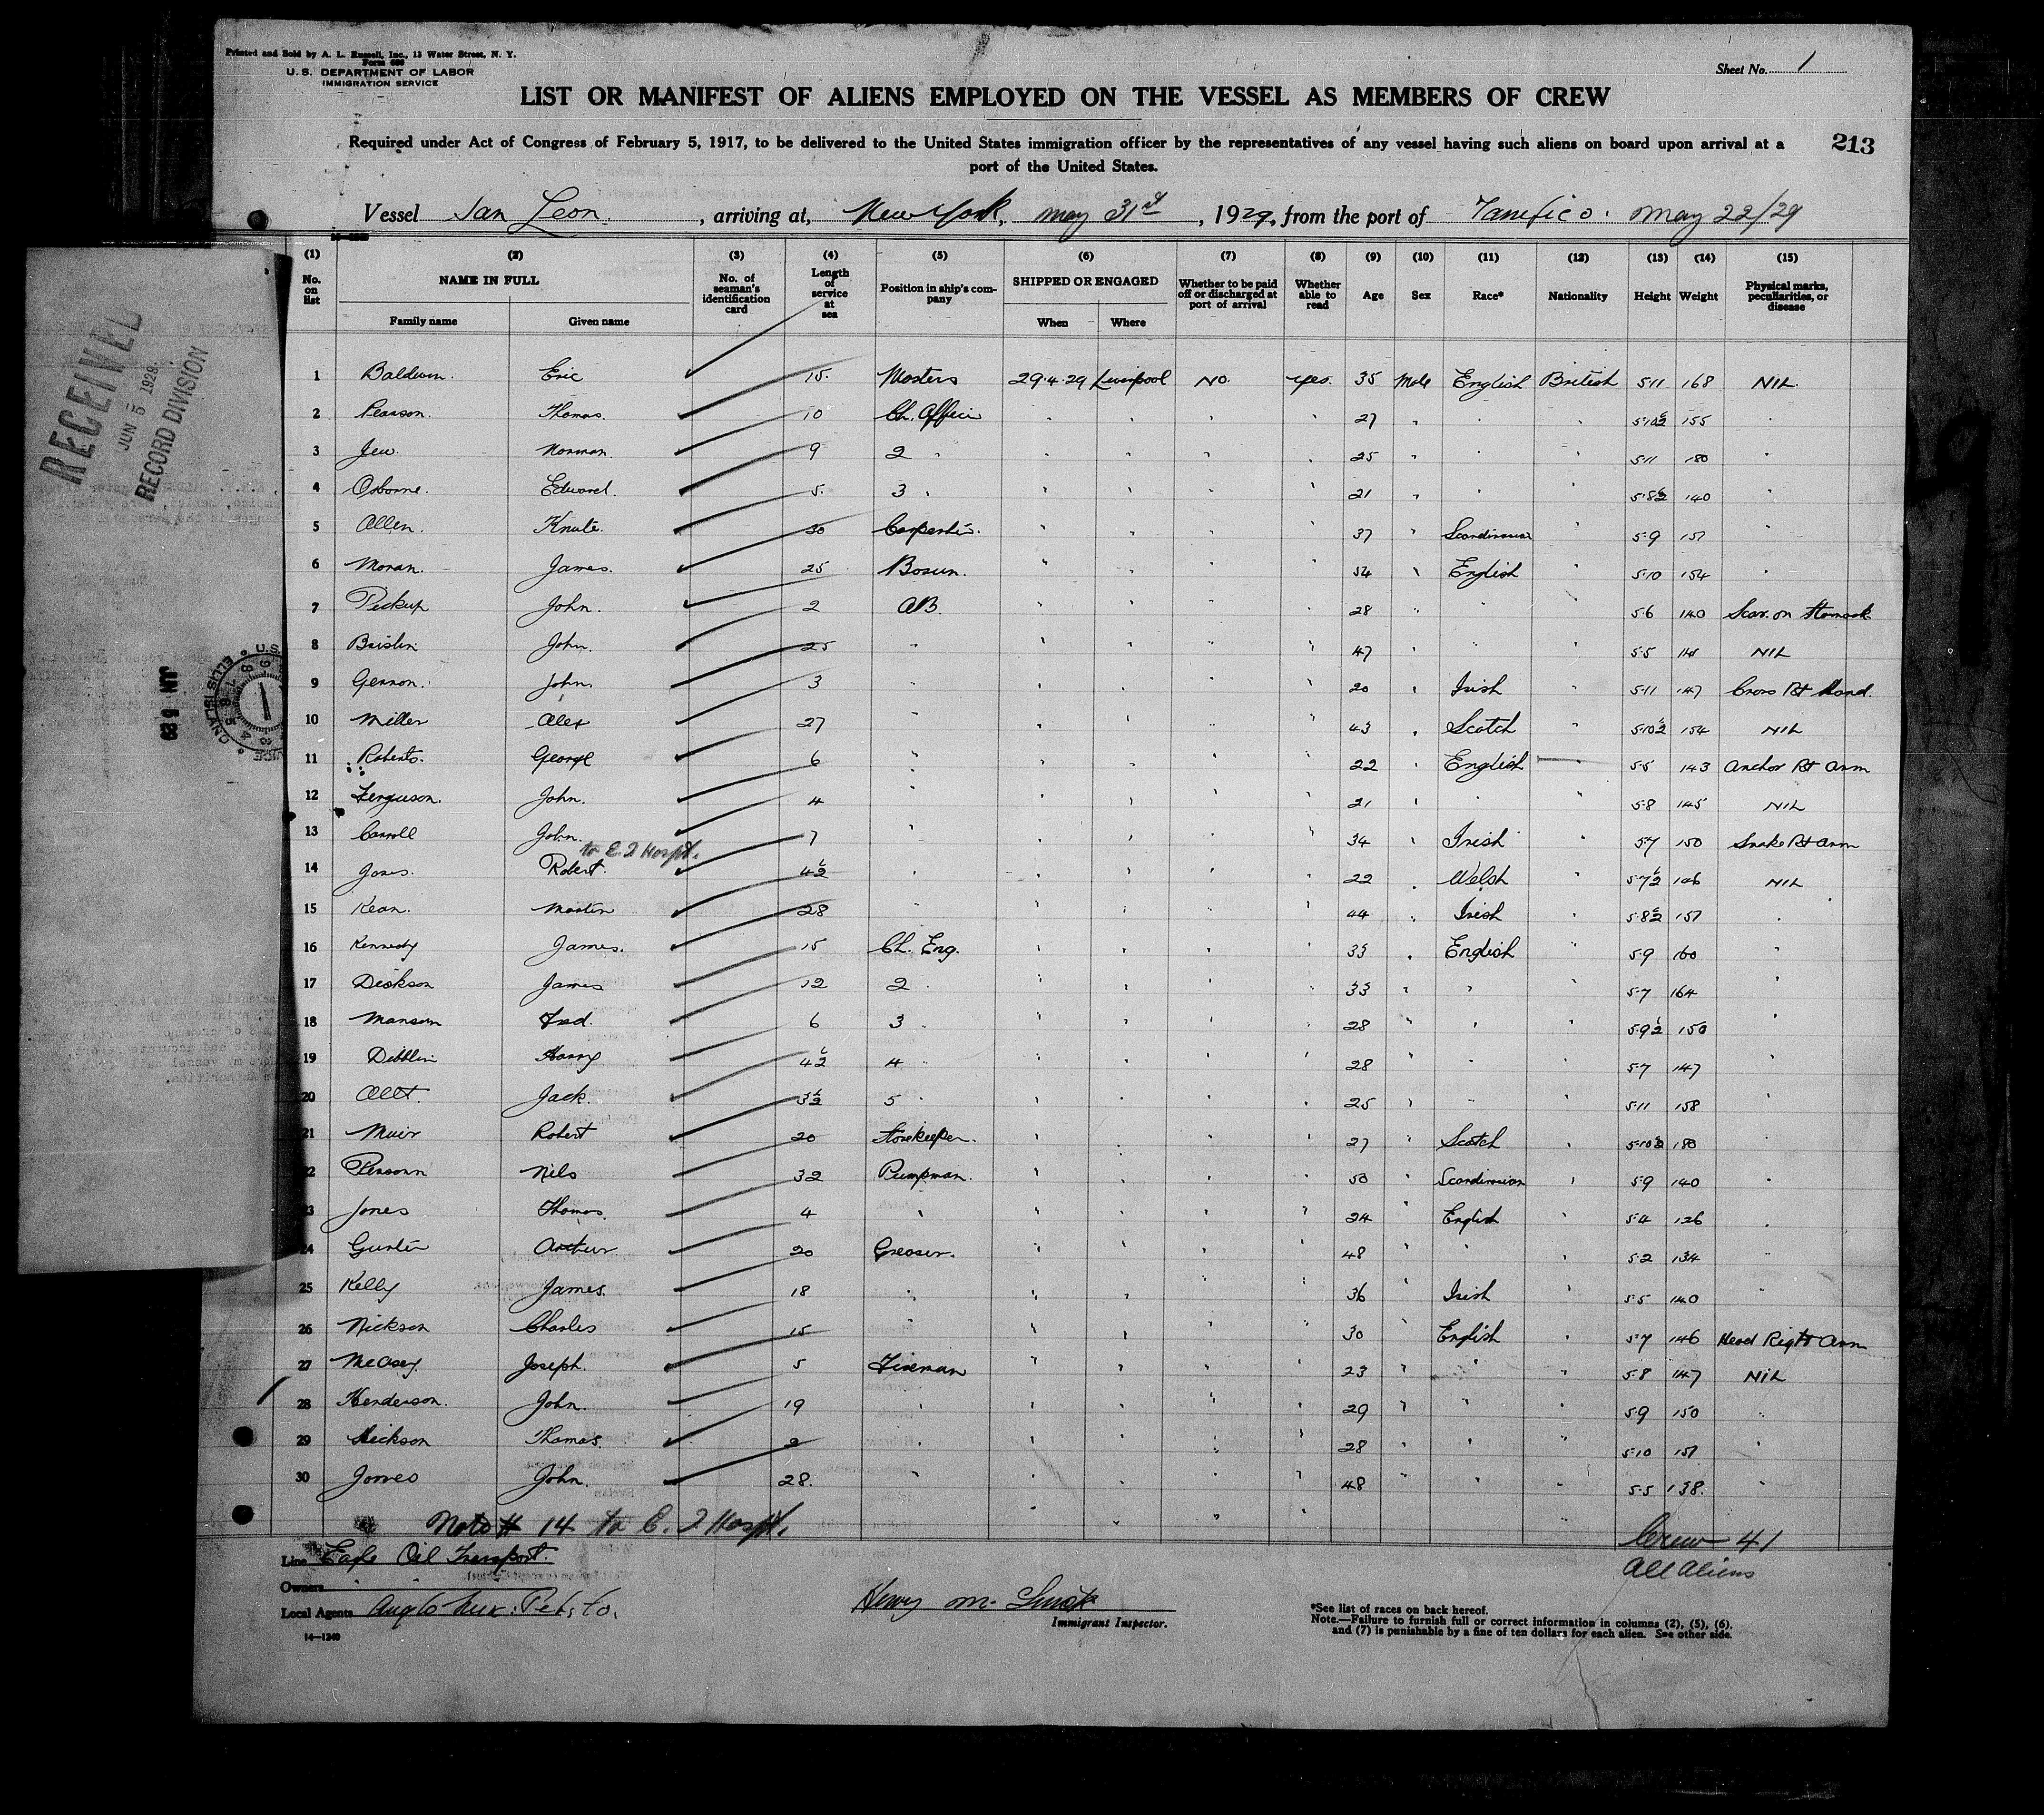 Printed and Sold by A. L. Russell, Inc., 13 Water Street, N. Y.
Form 680
U. S. DEPARTMENT OF LABOR
IMMIGRATION SERVICE
Sheet No. 1
LIST OR MANIFEST OF ALIENS EMPLOYED ON THE VESSEL AS MEMBERS OF CREW
Required under Act of Congress of February 5, 1917, to be delivered to the United States immigration officer by the representatives of any vessel having such aliens on board upon arrival at a
port of the United States.
213
Vessel San Leon, arriving at, New York, May 31st, 1929, from the port of May 22/29
(1) (2) (3) (4) (5) (6) (7) (8) (9) (10) (11) (12) (13) (14) (15)
No. on list NAME IN FULL No. of seaman's identification card Length of service at sea Position in ship's company SHIPPED OR ENGAGED Whether to be paid off or discharged at port of arrival Whether able to read Age Sex Race* Nationality Height Weight Physical marks, peculiarities, or disease
Family name Given name When Where
1 Baldwin. Eric 15. Masters 29.4.29 Liverpool No. yes. 35 Male English British 5.11 168 NIL.
2 Pearson. Thomas. 10 Ch. Officer " " " " 27 " " " 5.10½ 155 "
3 Jew. Norman. 9 2 " " " " " 25 " " " 5.11 180 "
4 Osborne. Edward. 5. 3 " " " " " 21 " " " 5.8½ 140 "
5 Allen. Knute. 30 Carpenter. " " " " 37 " Scandinavian " 5.9 151 "
6 Moran. James. 25 Bosun. " " " " 54 " English " 5.10 154 "
7 Pickup John. 2 AB. " " " " 28 " " " 5.6 140 Scar. on Stomach
8 John. 25 " " " " " 47 " " " 5.5 NIL
9 Gernon. John. 3 " " " " " 20 " Irish " 5.11 147 Cross Rt Hand.
10 Miller Alex 27 " " " " " 43 " Scotch " 5.10½ 154 NIL
11 Roberts. George 6 " " " " " 22 " English 5.5 143 Anchor Rt Arm
12 Ferguson. John. 4 " " " " " 21 " " " 5.8 145 NIL
13 Carroll John. 7 " " " " " 34 " Irish " 5.7 150 Snake Rt Arm
to E. I Hospt.
14 Jones. Robert. 4½ " " " " " 22 " Welsh " 5.7½ NIL
15 Kean. Martin 28 " " " " " 44 " Irish " 5.8½ 151 "
16 Kennedy James. 15 Ch. Eng. " " " " 33 " English " 5.9 160 "
17 Dickson James 12 2 " " " " " 33 " " " 5.7 164 "
18 Manson Fred. 6 3 " " " " " 28 " " " 5.9½ 150 "
19 Dibblin Harry 4½ 4 " " " " " 28 " " " 5.7 147 "
20 Allt. Jack. 3½ 5 " " " " " 25 " " " 5.11 158 "
21 Muir Robert 20 Storekeeper. " " " " 27 " Scotch " 5.10½ 180 "
22 Nils 32 Pumpman. " " " " 50 " Scandinavian " 5.9 140 "
23 Jones Thomas 4 " " " " " 24 " English " 5.4 126 "
24 Gunter Arthur 20 Greaser. " " " " 48 " " " 5.2 134 "
25 Kelly James. 18 " " " " " 36 " Irish " 5.5 140 "
26 Nickson Charles 15 " " " " " 30 " English " 5.7 146 Head Right Arm
27 Joseph. 5 Fireman " " " " 23 " " " 5.8 147 NIL
28 Henderson. John. 19 " " " " " 29 " " " 5.9 150 "
29 Thomas. 2 " " " " " 28 " " " 5.10 151 "
30 John. 28. " " " " " 48 " " " 5.5 138. "
Note # 14 to E. I Hospt.
Crew 41
All Aliens
Line Eagle Oil Transport.
Owners
Local Agents Anglo Mex: Pet. Co.
Henry M.
Immigrant Inspector.
*See list of races on back hereof.
Note.—Failure to furnish full or correct information in columns (2), (5), (6).
and (7) is punishable by a fine of ten dollars for each alien. See other side.
14—1240
RECEIVED
JUN 5 1929
RECORD DIVISION